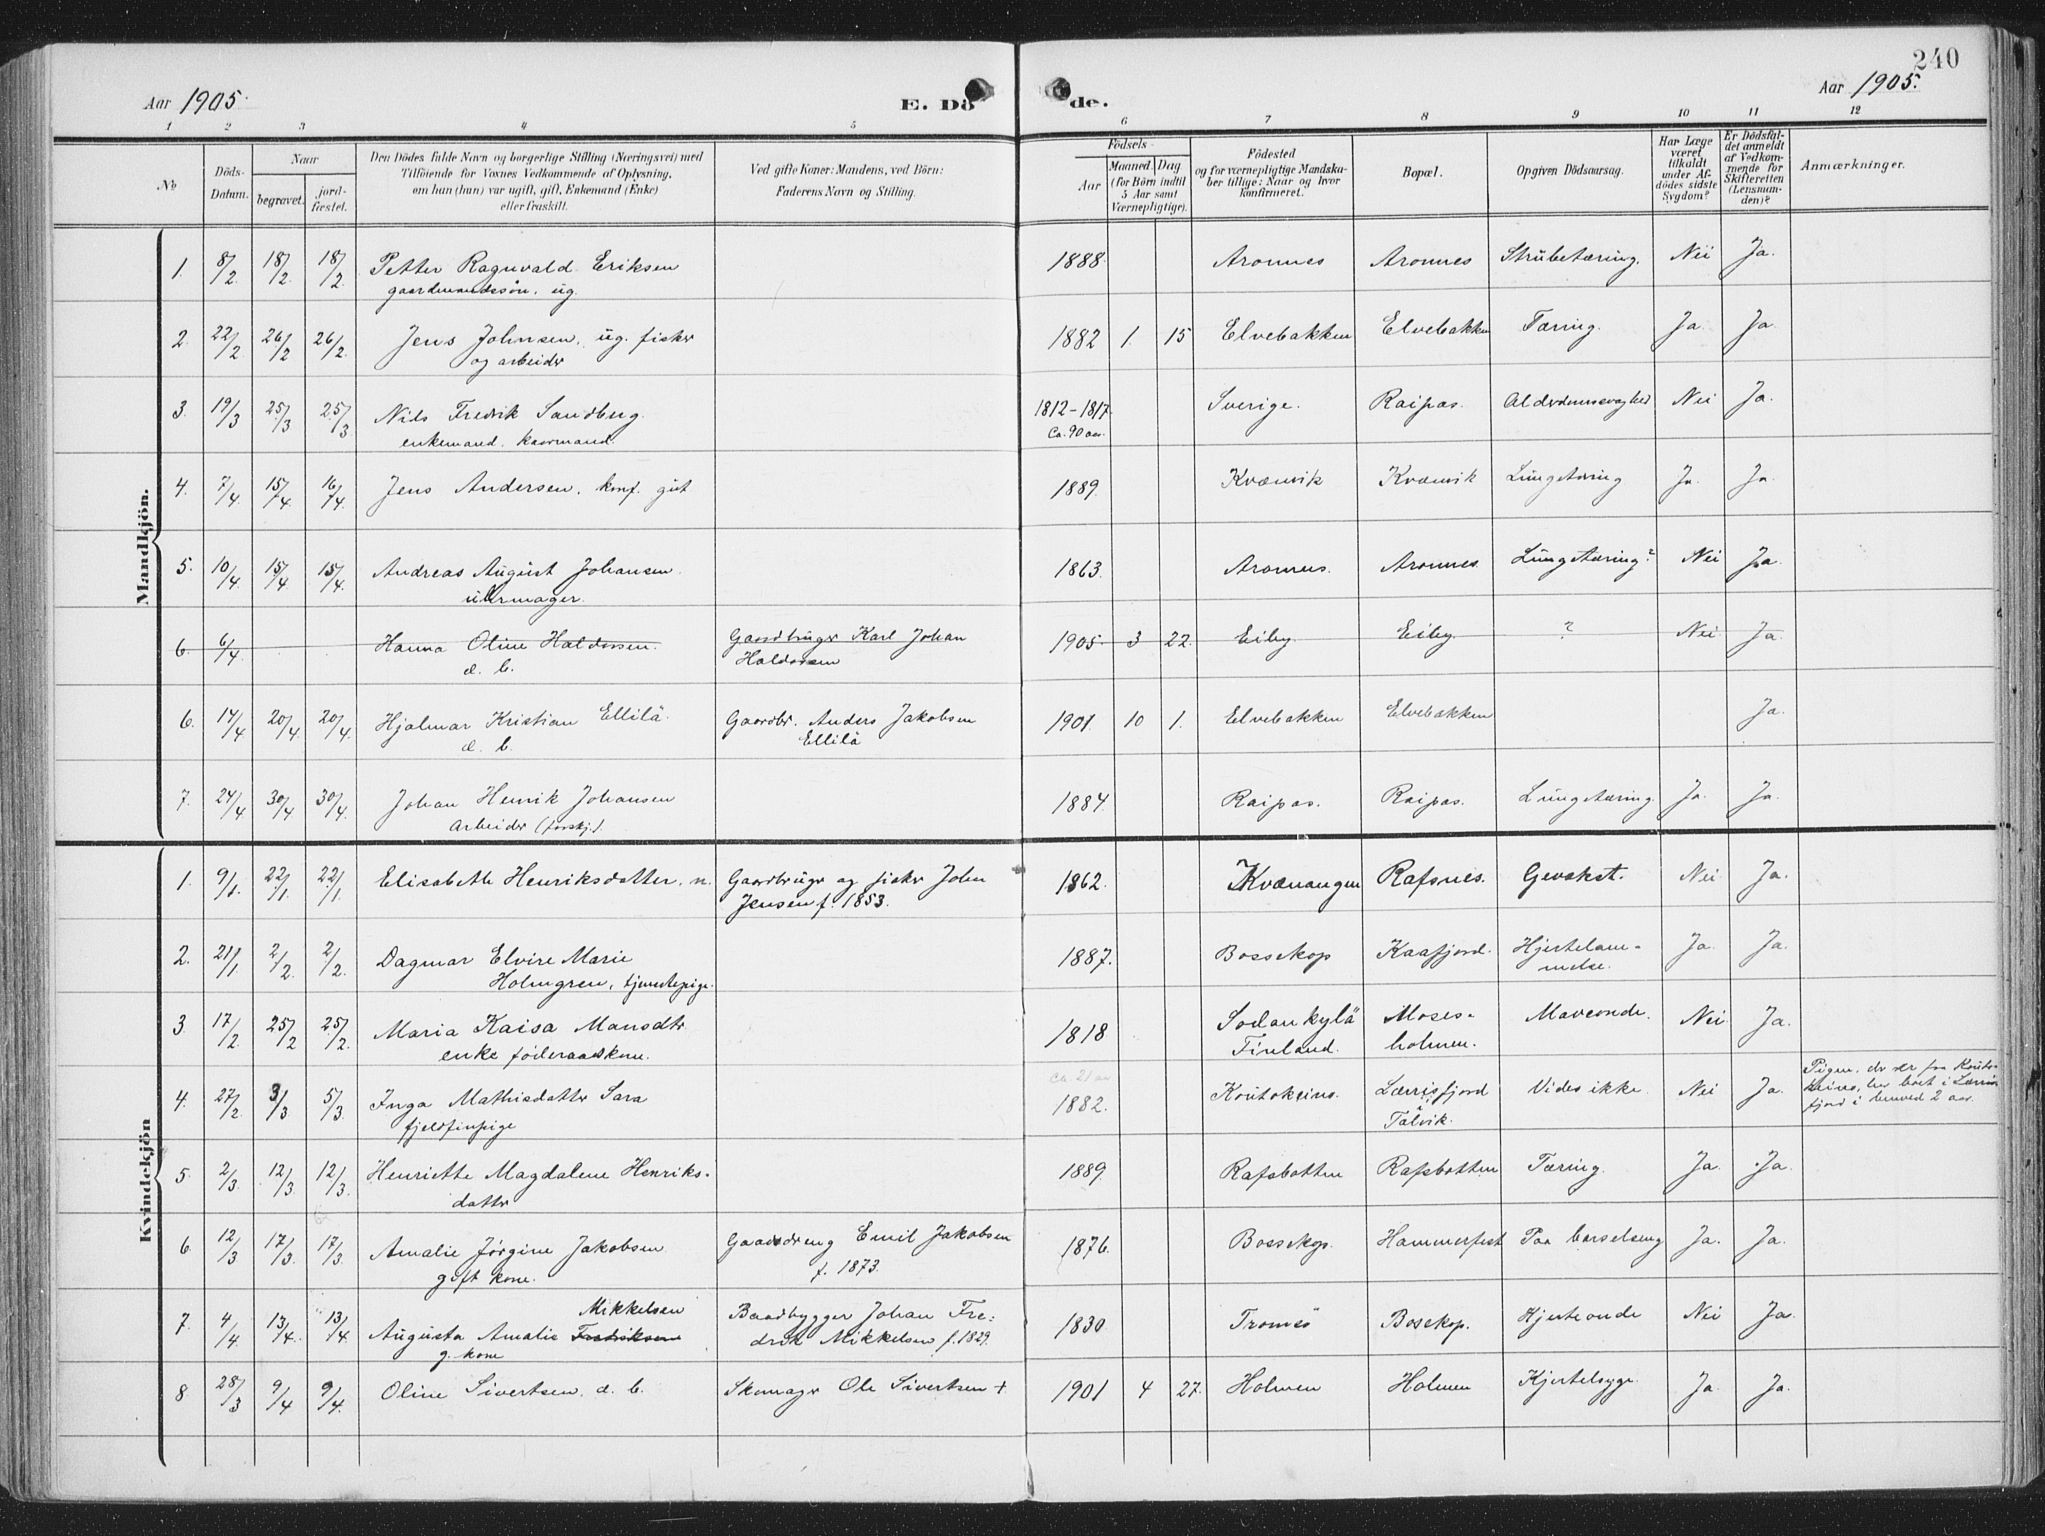 240
Aar 1905.
E. Dö de.
Aar 1905.
1 2 3 4 5 6 7 8 9 10 11 12
No
Döds-Datum.
Naar
begravet.
jord-fæstet.
Den Dödes fulde Navn og borgerlige Stilling (Næringsvei) med
Tilföiende for Voxnes Vedkommende af Oplysning,
om han (hun) var ugift, gift, Enkemand (Enke)
eller fraskilt.
Ved gifte Koner: Mandens, ved Börn:
Faderens Navn og Stilling.
Födsels-
Aar
Maaned Dag
(for Börn indtil
5 Aar samt
Værnepligtige).
Födested
og for værnepligtige Mandska-
ber tillige: Naar og hvor
konfirmeret.
Bopæl.
Opgiven Dödsaarsag.
Har Læge
været
tilkaldt
under Af-
dödes sidste
Sygdom?
Er Dödsfal-
det anmeldt
af Vedkom-
mende for
Skifteretten
(Lensman-
den)?
Anmærkninger.
Mandkjön.
1. 8/2. 18/2. 18/2. Petter Ragnvald Eriksen 1888. Aronnes Aronnes Strubetæring. Nei Ja.
gaardmandssön. ug.
2. 22/2 26/2 26/2. Jens Johnsen, ug. fisker 1882 1. 15 Elvebakken Elvebakken Tæring. Ja Ja
og arbeider
3. 19/3 25/3 25/3 Nils Fredrik Sandberg. 1812-1817. Sverige. Raipas. Alderdomssvaghed Nei Ja.
enkemand. kaarmand. Ca. 90 aar.
4. 7/4. 15/4. 16/4. Jens Andersen, konf. gut 1889. Kvænvik Kvænvik Lungetæring Ja. Ja.
5. 10/4. 15/4. 15/4. Andreas August Johansen. 1863. Aronnes. Aronnes. Lungetæring? Nei Ja.
uhrmager.
6. 6/4. Hanna Oline Haldorsen. Gaardbruger Karl Johan 1905 3 22. Eiby. Eiby. ? Nei Ja.
d. b. Haldorsen
6. 14/4 20/4. 20/4. Hjalmar Kristian Ellilä. Gaardbr. Anders Jakobsen 1901. 10 1. Elvebakken Elvebakken Ja.
d. b. Ellilä
7. 24/4 30/4 30/4. Johan Henrik Johansen 1884. Raipas. Raipas. Lungetæring. Ja. Ja.
Arbeider (forskj.).
Kvindekjön
1. 9/1. 22/1. 22/1. Elisabeth Henriksdatter. n. Gaardbruger og fisker John 1862. Kvænangen Rafsnes. Gevækst. Nei Ja.
Jensen f. 1853.
2. 21/1 2/2. 2/2. Dagmar Elvire Marie 1887. Bossekop Kaafjord. Hjertelam- Ja. Ja.
Holmgren, tjenestepige. melse.
3. 17/2. 25/2 25/2. Maria Kaisa Mansdtr 1818 Sodankylä Moses- Maveonde. Nei Ja.
enke föderaadskone. Finland. holmen.
4. 27/2. 3/3 5/3. Inga Mathisdatter Sara Ca. 21 aar 1882. Koutokeino. Lærrisfjord Vides ikke. Nei Ja. Pigen, der er fra Kouto-
fjeldfinpige i Talvik. keino, har boet i Lærris-
fjord i henved 2 aar.
5. 2/3. 12/3 12/3. Henriette Magdalene Henriks- 1889. Rafsbotten Rafsbotten Tæring. Ja. Ja.
datter
6. 12/3 17/3. 17/3. Amalie Jörgine Jakobsen Gaardsdreng Emil Jakobsen 1876. Bossekop. Hammerfest Paa barselseng Ja. Ja.
gift kone. f. 1873.
7. 4/4. 13/4. 13/4. Augusta Amalie Fredriksen Mikkelsen Baadbygger Johan Fre- 1830 Tromsö Bosekop. Hjerteonde Nei Ja.
g. kone drik Mikkelsen f. 1829.
8 28/3 9/4 9/4. Oline Sivertsen. d. b. Skomager Ole Sivertsen + 1901 4 27. Holmen Holmen Kjertelsyge. Ja. Ja.